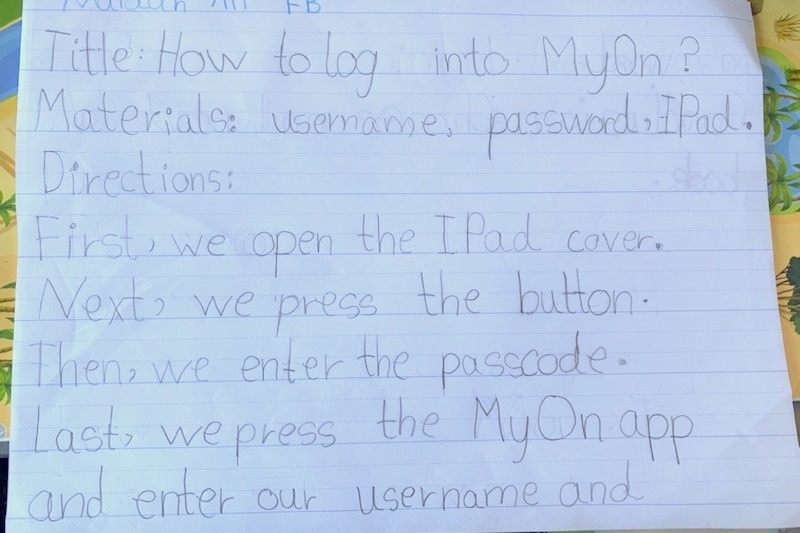 FB
Title: How to log into MyOn?
Materials: username, password, IPad.
Directions:
First, we open the IPad cover.
Next, we press the button.
Then, we enter the passcode.
Last, we press the MyOn app
and enter our username and